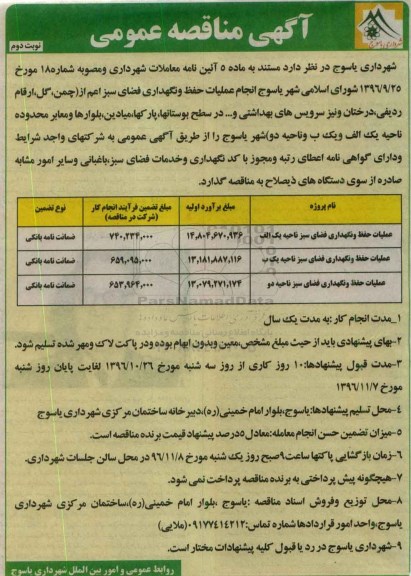 آگهی مناقصه عمومی
نوبت دوم
شهرداری یاسوج
شهرداری یاسوج در نظر دارد مستند به ماده ۵ آئین نامه معاملات شهرداری ومصوبه شماره۱۸ مورخ
۱۳۹۶/۹/۲۵ شورای اسلامی شهر یاسوج انجام عملیات حفظ ونگهداری فضای سبز اعم از(چمن،گل،ارقام
ردیفی،درختان ونیز سرویس های بهداشتی و... در سطح بوستانها،پارکها،میادین،بلوارها ومعابر محدوده
ناحیه یک الف ویک ب وناحیه دو)شهر یاسوج را از طریق آگهی عمومی به شرکتهای واجد شرایط
ودارای گواهی نامه اعطای رتبه ومجوز با کد نگهداری وخدمات فضای سبز،باغبانی وسایر امور مشابه
صادره از سوی دستگاه های ذیصلاح به مناقصه گذارد.
نام پروژه مبلغ برآورد اولیه مبلغ تضمین فرآیند انجام کار (شرکت در مناقصه) نوع تضمین
عملیات حفظ ونگهداری فضای سبز ناحیه یک الف ۱۴,۸۰۴,۶۷۰,۹۳۶ ۷۴۰,۲۳۴,۰۰۰ ضمانت نامه بانکی
عملیات حفظ ونگهداری فضای سبز ناحیه یک ب ۱۳,۱۸۱,۸۸۷,۱۱۶ ۶۵۹,۰۹۵,۰۰۰ ضمانت نامه بانکی
عملیات حفظ ونگهداری فضای سبز ناحیه دو ۱۳,۰۷۹,۲۷۱,۱۷۴ ۶۵۳,۹۶۴,۰۰۰ ضمانت نامه بانکی
ParsNamadData
۱_مدت انجام کار :به مدت یک سال
۲-بهای پیشنهادی باید از حیث مبلغ مشخص،معین وبدون ابهام بوده ودر پاکت لاک ومهر شده تسلیم شود.
۳-مدت قبول پیشنهادها:۱۰ روز کاری از روز سه شنبه مورخ ۱۳۹۶/۱۰/۲۶ لغایت پایان روز شنبه
مورخ ۱۳۹۶/۱۱/۷
۴-محل تسلیم پیشنهادها:یاسوج،بلوار امام خمینی(ره)،دبیر خانه ساختمان مرکزی شهرداری یاسوج
۵-میزان تضمین حسن انجام معامله:معادل ۵درصد پیشنهاد قیمت برنده مناقصه است.
۶-زمان بازگشایی پاکتها ساعت۹صبح روز یک شنبه مورخ ۹۶/۱۱/۸ در محل سالن جلسات شهرداری.
۷-هیچگونه پیش پرداختی به برنده مناقصه پرداخت نمی شود.
۸-محل توزیع وفروش اسناد مناقصه :یاسوج ،بلوار امام خمینی(ره)،ساختمان مرکزی شهرداری
یاسوج،واحد امور قراردادها شماره تماس:۰۹۱۷۷۴۱۴۲۱۲(ملایی)
۹-شهرداری یاسوج در رد یا قبول کلیه پیشنهادات مختار است.
روابط عمومی و امور بین الملل شهرداری یاسوج